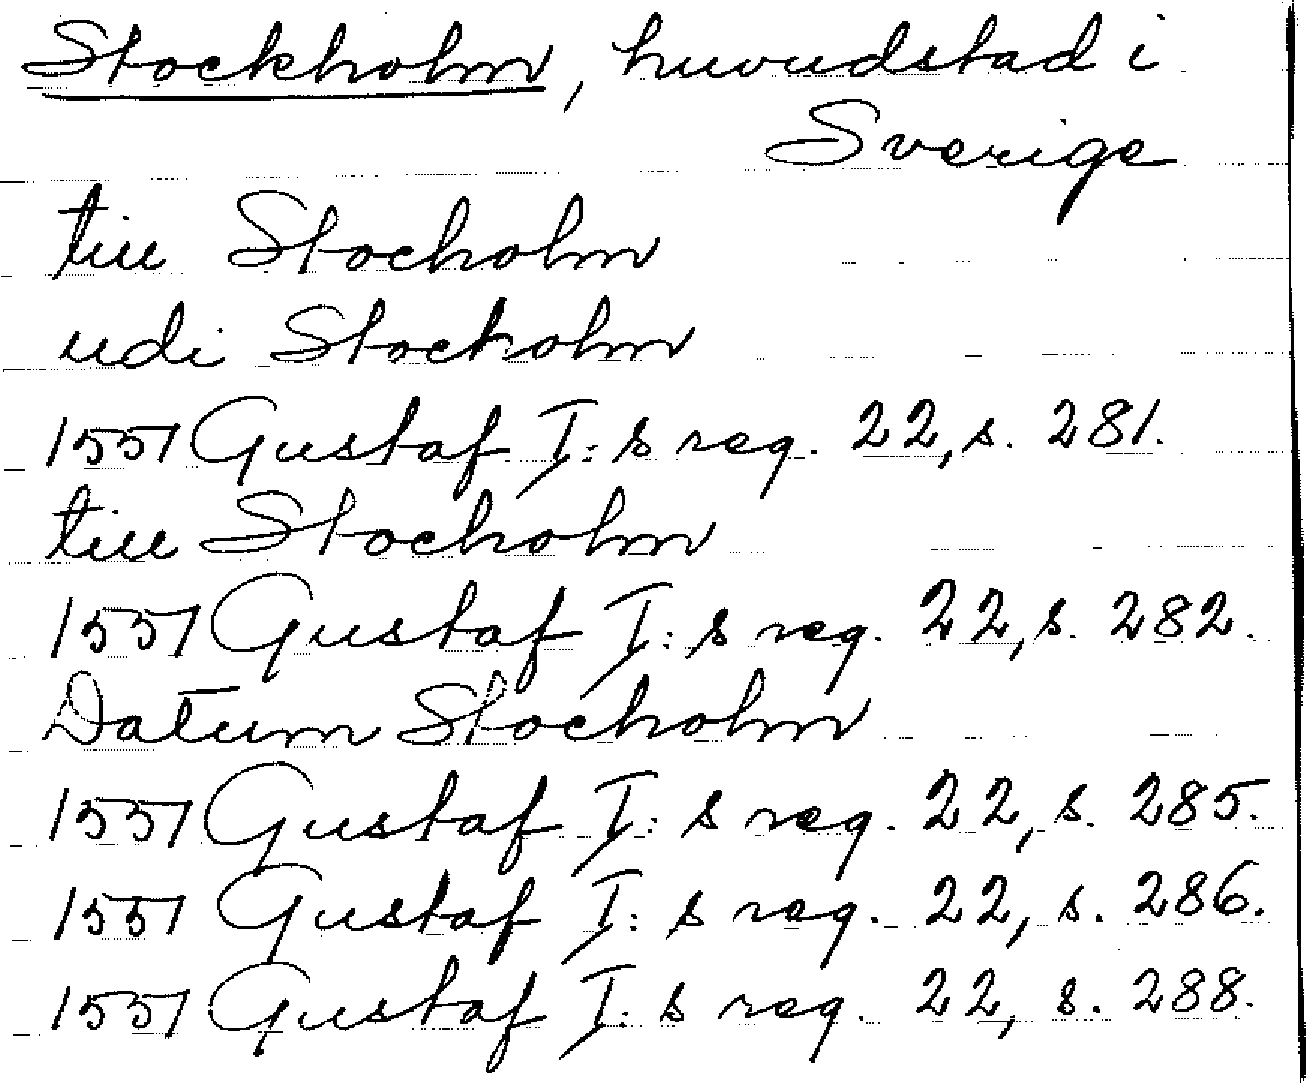 Stockholm, huvudstad i
Sverige
till Stocholm
udi Stockolm
1551 Gustaf I:s reg. 22, s. 281.
till Stocholm
1551 Gustaf I:s reg. 22, s. 282.
Datum Stocholm
1551 Gustaf I:s reg. 22, s. 285.
1551 Gustaf I:s reg. 22, s. 286.
1551 Gustaf I:s reg. 22, s. 288.